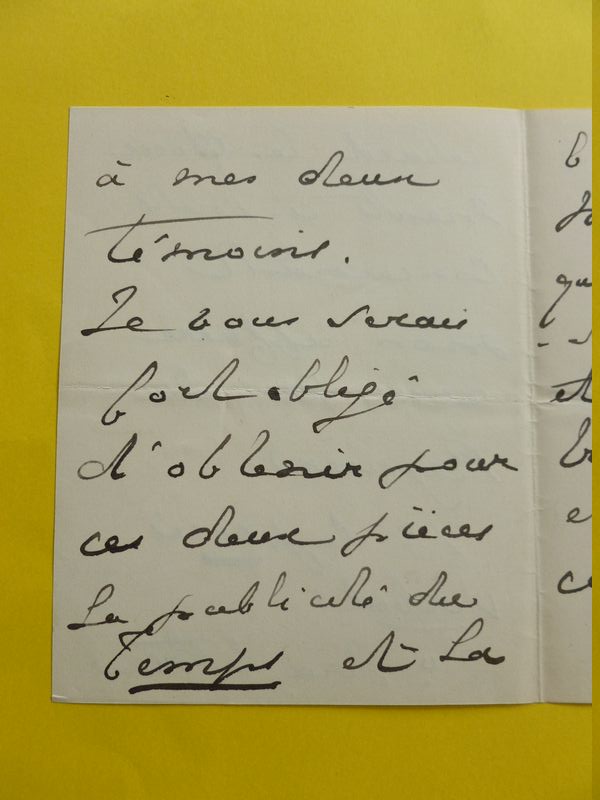 à mes deux
témoins.
Je vous serais
fort obligé
d'obtenir pour
ces deux pièces
La publicité du
Temps et La